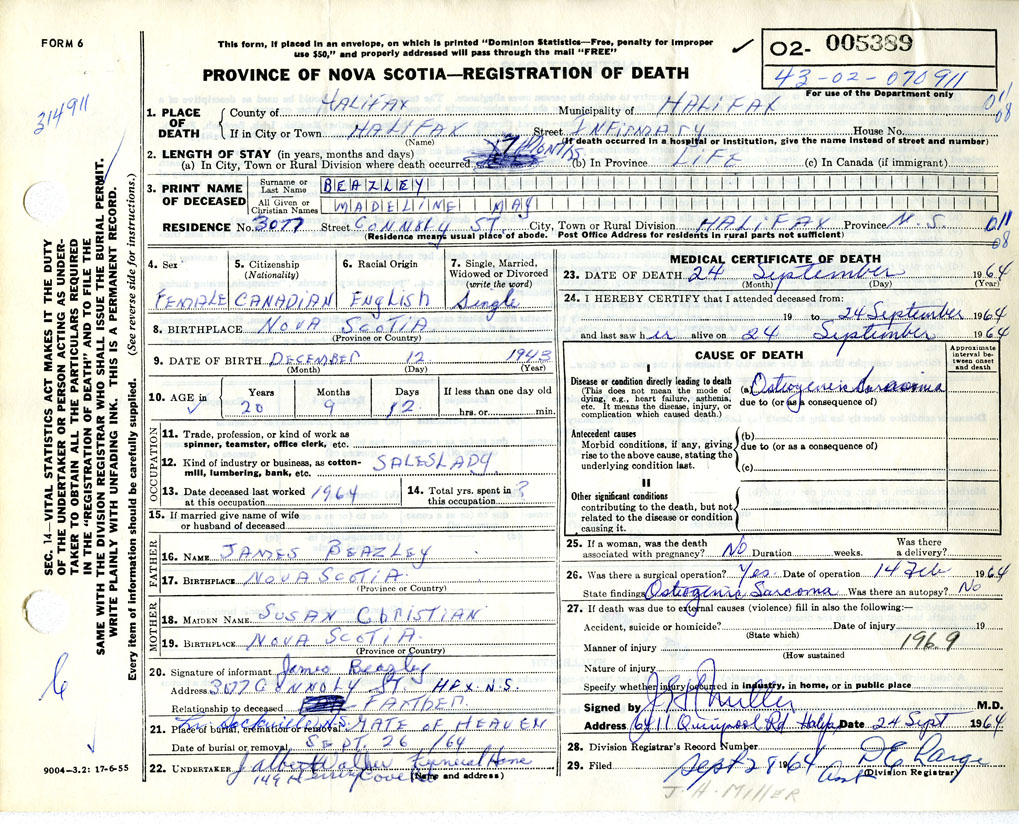 FORM 6
This form, if placed in an envelope, on which is printed "Dominion Statistics—Free, penalty for improper
use $50," and properly addressed will pass through the mail "FREE"
PROVINCE OF NOVA SCOTIA—REGISTRATION OF DEATH
✓
02- 005389
43-02-070911
For use of the Department only
314911
011
08
1. PLACE OF DEATH
County of HALIFAX Municipality of HALIFAX
If in City or Town HALIFAX Street INFIRMARY House No.
(Name) (If death occurred in a hospital or Institution, give the name instead of street and number)
2. LENGTH OF STAY (in years, months and days)
(a) In City, Town or Rural Division where death occurred 7 MONTHS (b) In Province LIFE (c) In Canada (if immigrant)
3. PRINT NAME OF DECEASED
Surname or Last Name BEAZLEY
All Given or Christian Names MADELINE MAY
RESIDENCE No. 3077 Street CONNOLY ST. City, Town or Rural Division HALIFAX Province N.S.
011
08
(Residence means usual place of abode. Post Office Address for residents in rural parts not sufficient)
4. Sex FEMALE
5. Citizenship (Nationality) CANADIAN
6. Racial Origin English
7. Single, Married, Widowed or Divorced (write the word) Single
8. BIRTHPLACE NOVA SCOTIA
(Province or Country)
9. DATE OF BIRTH DECEMBER 12 1943
(Month) (Day) (Year)
10. AGE in ✓ Years 20 Months 9 Days 12 If less than one day old hrs. or min.
OCCUPATION
11. Trade, profession, or kind of work as spinner, teamster, office clerk, etc.
12. Kind of industry or business, as cotton-mill, lumbering, bank, etc. SALESLADY
13. Date deceased last worked at this occupation 1964
14. Total yrs. spent in this occupation 3
15. If married give name of wife or husband of deceased
FATHER
16. NAME JAMES BEAZLEY
17. BIRTHPLACE NOVA SCOTIA
(Province or Country)
MOTHER
18. MAIDEN NAME SUSAN CHRISTIAN
19. BIRTHPLACE NOVA SCOTIA
(Province or Country)
20. Signature of informant James Beazley
Address 3077 CONNOLY ST HFX. N.S.
Relationship to deceased FATHER
21. Place of burial, cremation or removal Sackville N.S. GATE OF HEAVEN
Date of burial or removal SEPT 26/64
22. UNDERTAKER Funeral Home
(Name and address)
MEDICAL CERTIFICATE OF DEATH
23. DATE OF DEATH 24 September 1964
(Month) (Day) (Year)
24. I HEREBY CERTIFY that I attended deceased from:
19 to 24 September 1964
and last saw her alive on 24 September 1964
CAUSE OF DEATH
Approximate interval between onset and death
I
Disease or condition directly leading to death
(This does not mean the mode of dying, e.g., heart failure, asthenia, etc. It means the disease, injury, or complication which caused death.)
(a) Osteogenic Sarcoma
due to (or as a consequence of)
Antecedent causes
Morbid conditions, if any, giving rise to the above cause, stating the underlying condition last.
(b)
due to (or as a consequence of)
(c)
II
Other significant conditions
contributing to the death, but not related to the disease or condition causing it.
25. If a woman, was the death associated with pregnancy? No Duration weeks. Was there a delivery?
26. Was there a surgical operation? Yes. Date of operation 14 Feb 1964
State findings Osteogenic Sarcoma Was there an autopsy? No
27. If death was due to external causes (violence) fill in also the following:—
Accident, suicide or homicide? Date of injury 19
(State which)
Manner of injury 1969
(How sustained)
Nature of injury
Specify whether injury occurred in industry, in home, or in public place
Signed by J H Miller M.D.
Address 6411 Quinpool Rd Halifax Date 24 Sept 1964
28. Division Registrar's Record Number
29. Filed Sept 28 1964 D E Large
(Division Registrar)
J. H. MILLER
SEC. 14—VITAL STATISTICS ACT MAKES IT THE DUTY
OF THE UNDERTAKER OR PERSON ACTING AS UNDER-
TAKER TO OBTAIN ALL THE PARTICULARS REQUIRED
IN THE "REGISTRATION OF DEATH" AND TO FILE THE
SAME WITH THE DIVISION REGISTRAR WHO SHALL ISSUE THE BURIAL PERMIT.
WRITE PLAINLY WITH UNFADING INK. THIS IS A PERMANENT RECORD.
Every item of information should be carefully supplied. (See reverse side for instructions.)
9004—3.2: 17-6-55